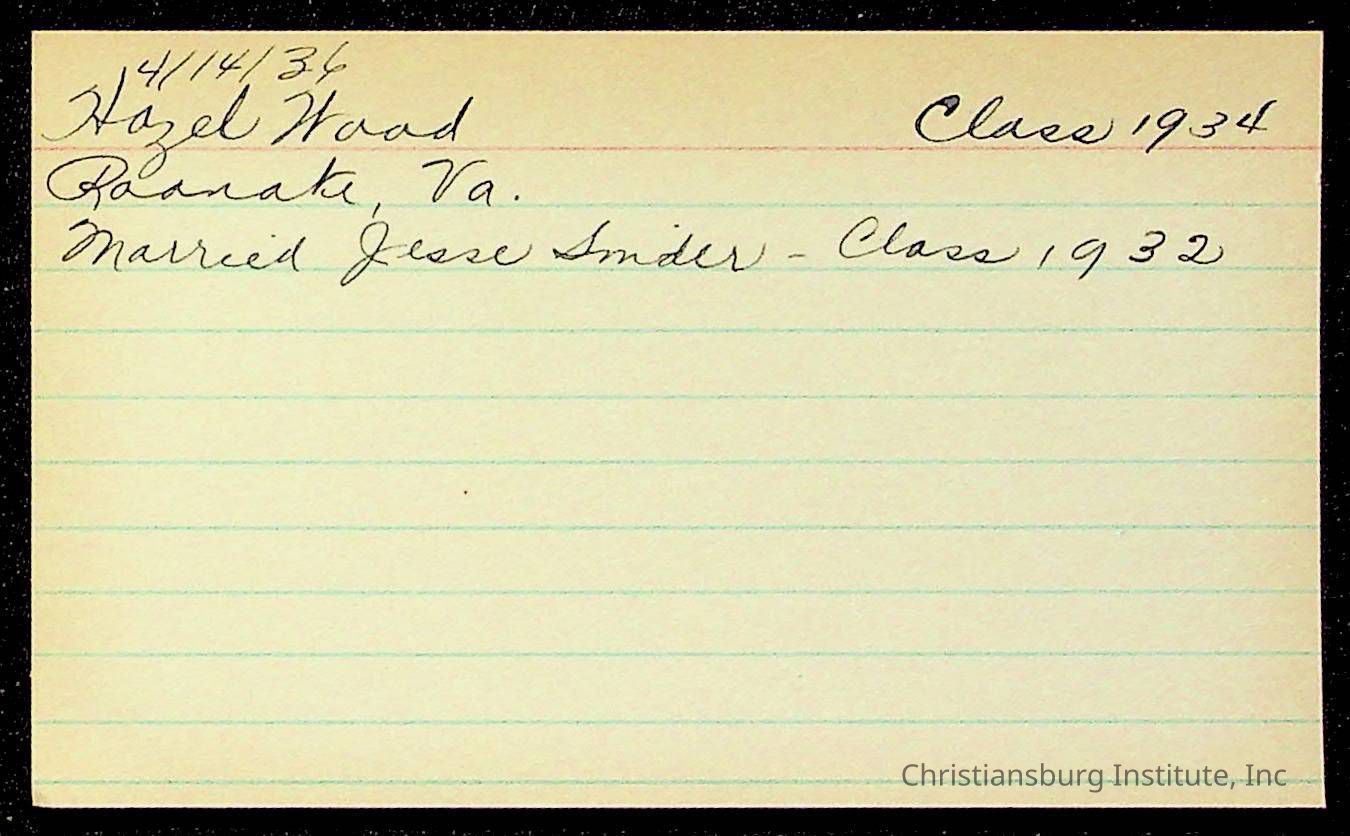 4/14/36
Hazel Wood Class 1934
Roanoke, Va.
Married Jesse Snider - Class 1932
Christiansburg Institute, Inc